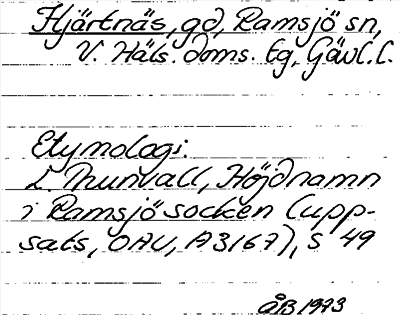 Hjärtnäs, gd, Ramsjö sn,
V. Häls. doms. tg, Gävl. l.
Etymologi:
L. Nunvall, Höjdnamn
i Ramsjö socken (upp-
sats, OAU, A3167), s 49
ÅB 1973